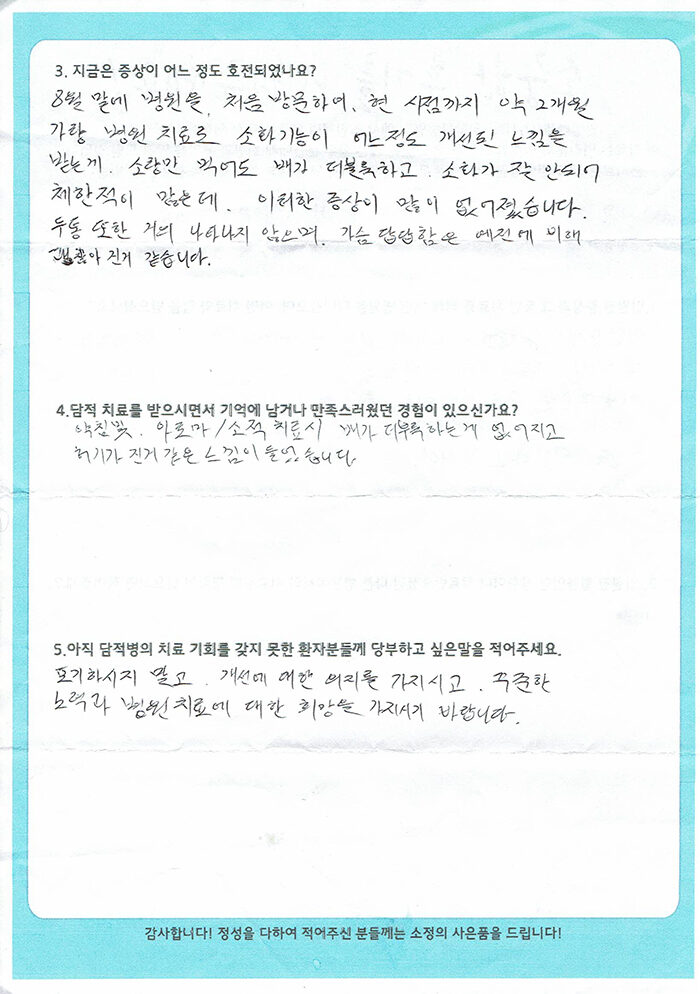 3. 지금은 증상이 어느 정도 호전되었나요?
8월 말에 병원을, 처음 방문하여, 현 시점까지 약 2개월
가량 병원 치료로 소화기능이 어느정도 개선된 느낌을
받는게. 소량만 먹어도 배가 더부룩하고. 소화가 잘 안되어
체한적이 많은데. 이러한 증상이 많이 없어졌습니다.
두통 또한 거의 나타나지 않으며. 가슴 답답함은 예전에 비해
진거 같습니다.
4.담적 치료를 받으시면서 기억에 남거나 만족스러웠던 경험이 있으신가요?
약침및. 아로마/소적 치료시 배가 더부룩하는게 없어지고
허기가 진거 같은 느낌이 들었습니다.
5.아직 담적병의 치료 기회를 갖지 못한 환자분들께 당부하고 싶은말을 적어주세요.
포기하시지 말고. 개선에 대한 의지를 가지시고. 꾸준한
노력과 병원치료에 대한 희망을 가지시기 바랍니다.
감사합니다! 정성을 다하여 적어주신 분들께는 소정의 사은품을 드립니다!